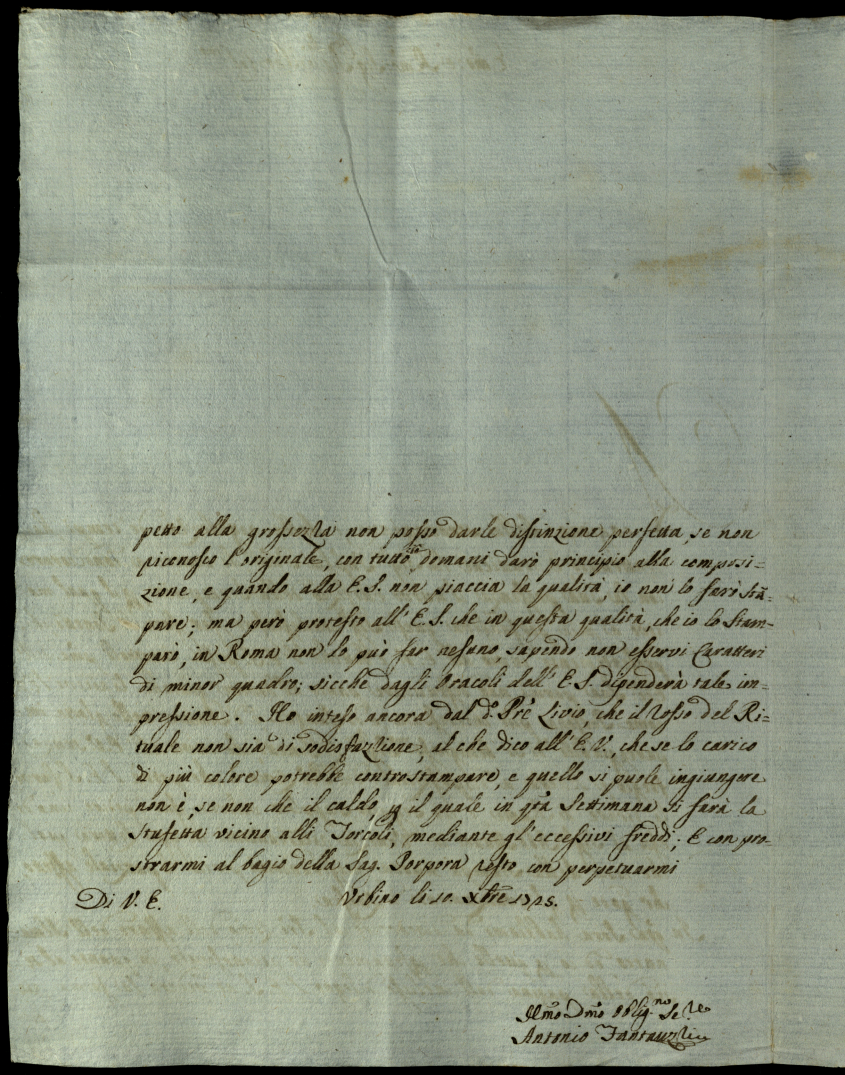 petto alla grossezza non posso darle distinzione perfetta se non
riconosco l'originale, con tutto ciò domani darò principio alla composi-
zione, e quando alla E.S. non piaccia la qualità, io non lo farò stã-
pare; ma però protesto all'E.S. che in questa qualità, che io lo stam-
parò, in Roma non lo può far nesuno, sapendo non esservi Caratteri
di minor quadro; sicche dagli Oracoli dell'E.S. dipenderà tale im-
pressione. Ho inteso ancora dal d. Prẽ Livio, che il rosso del Ri-
tuale non sia di sodisfazzione, al che dico all'E.V., che se lo carico
di più colore potrebbe controstampare, e quello si puole ingiungere
non è, se non che il caldo, p il quale in qtã Settimana si farà la
stufetta vicino alli Torcoli, mediante gl'eccessivi freddi; E con pro-
strarmi al bagio della Sag. Porpora resto con perpetuarmi
Di V. E. Urbino li 10. Xbrẽ 1725.
Umõ Dmõ Oblig.mo Se.re
Antonio Fantauzzi